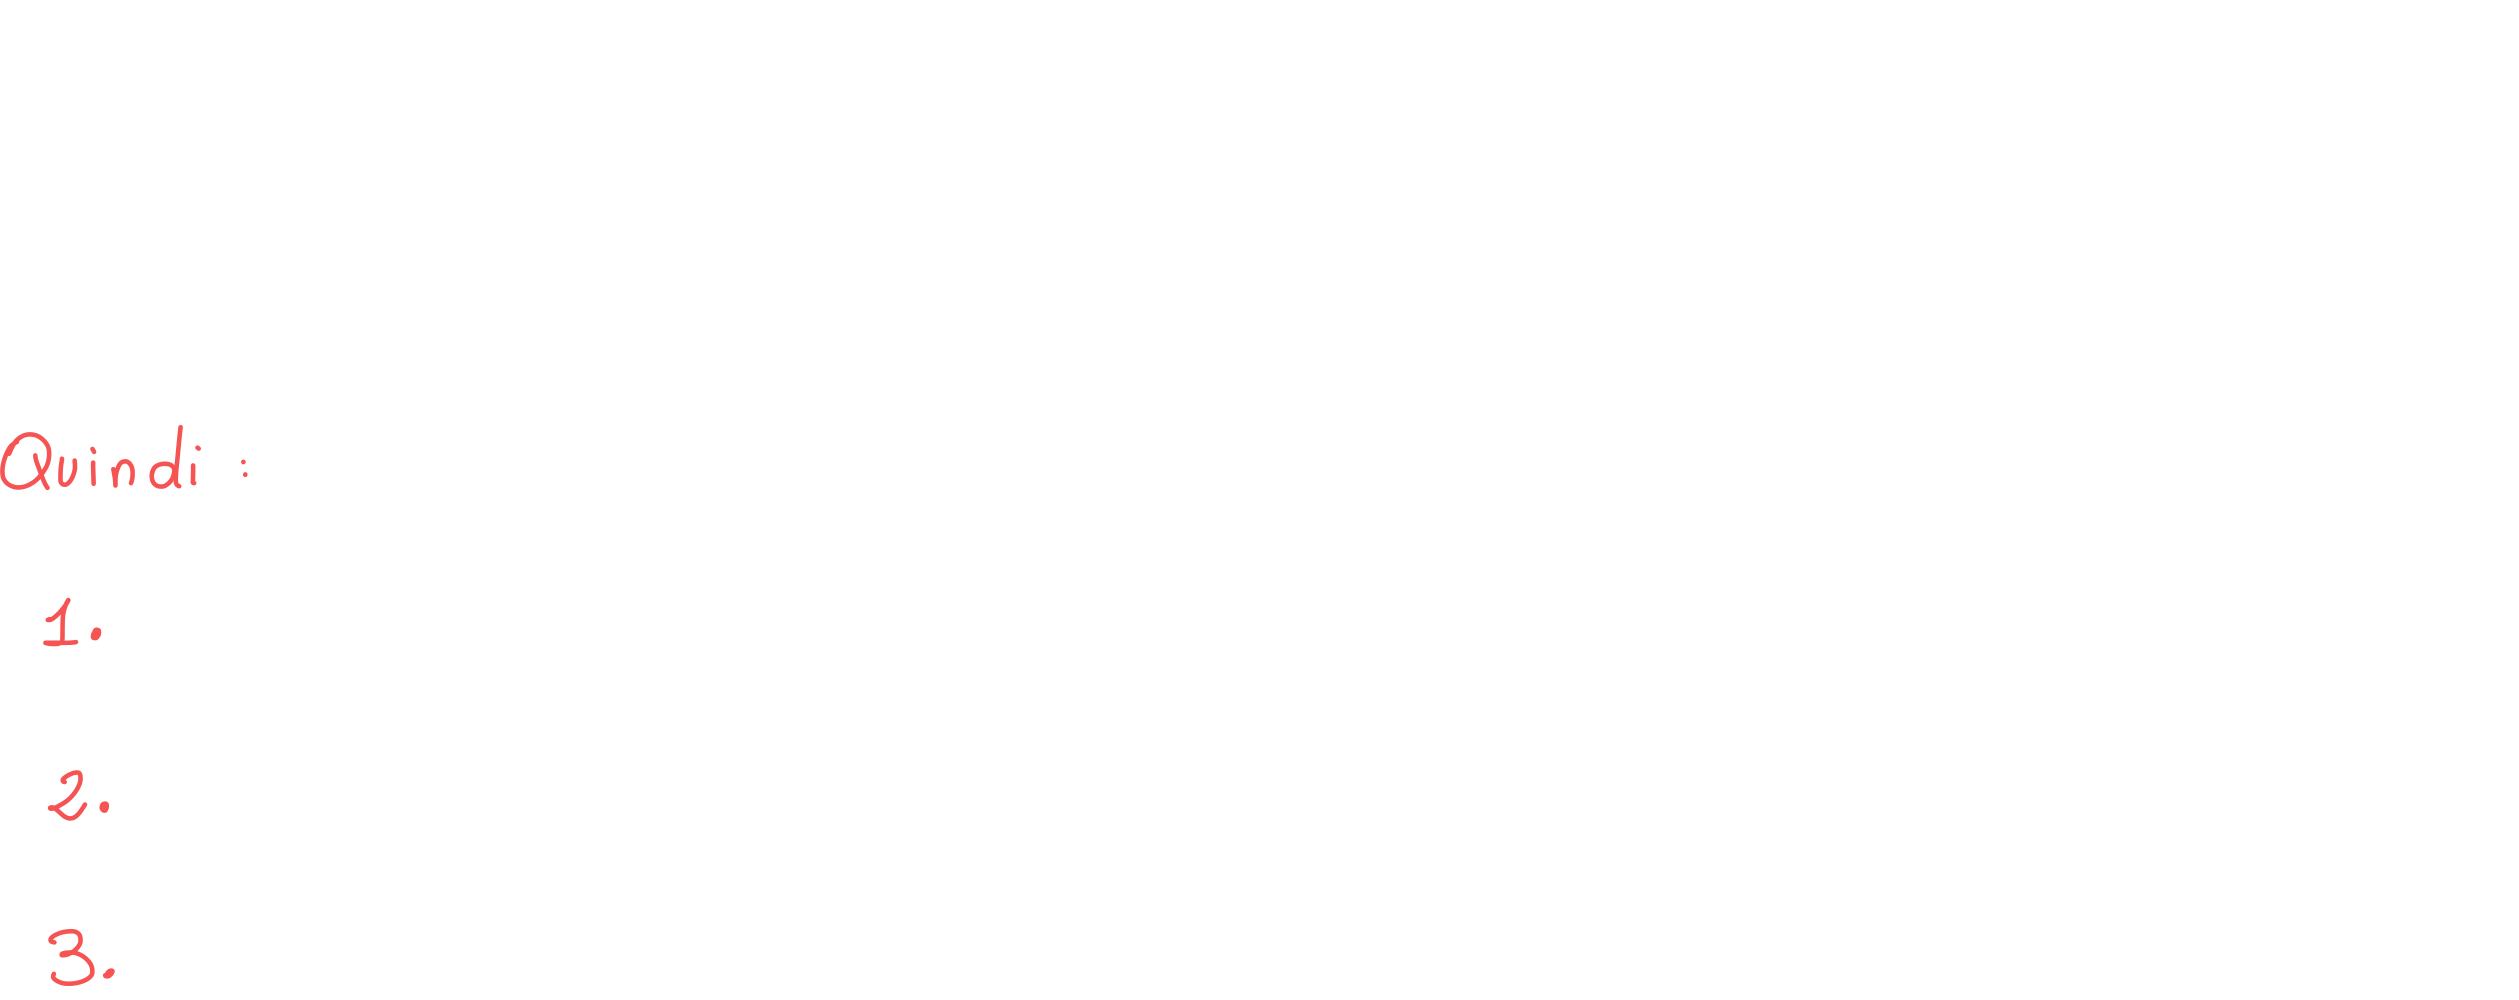 Quindi :
1.
2.
3.